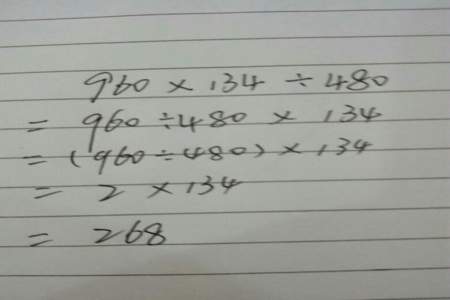 960 × 134 ÷ 480
= 960 ÷ 480 × 134
= (960 ÷ 480) × 134
= 2 × 134
= 268